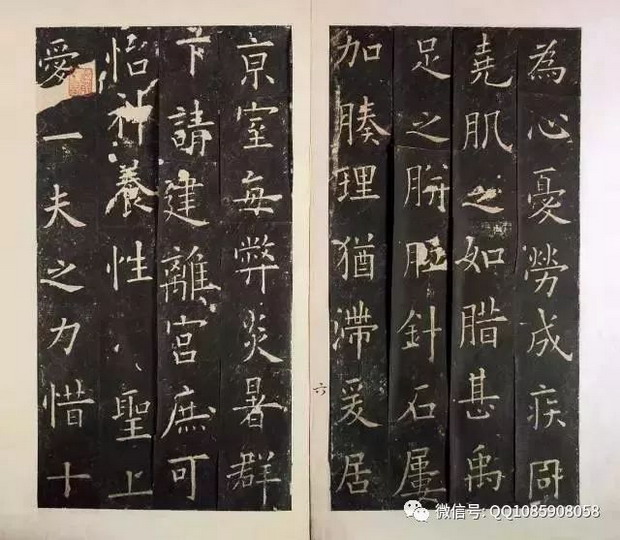 為心憂勞成疾同
堯肌之如腊甚禹
足之胼胝針石屢
加腠理猶滯爰居
六
亰室每弊炎暑群
下請建離宮庶可
怡神養性聖上
愛一夫之力惜十
微信号: QQ1085908058